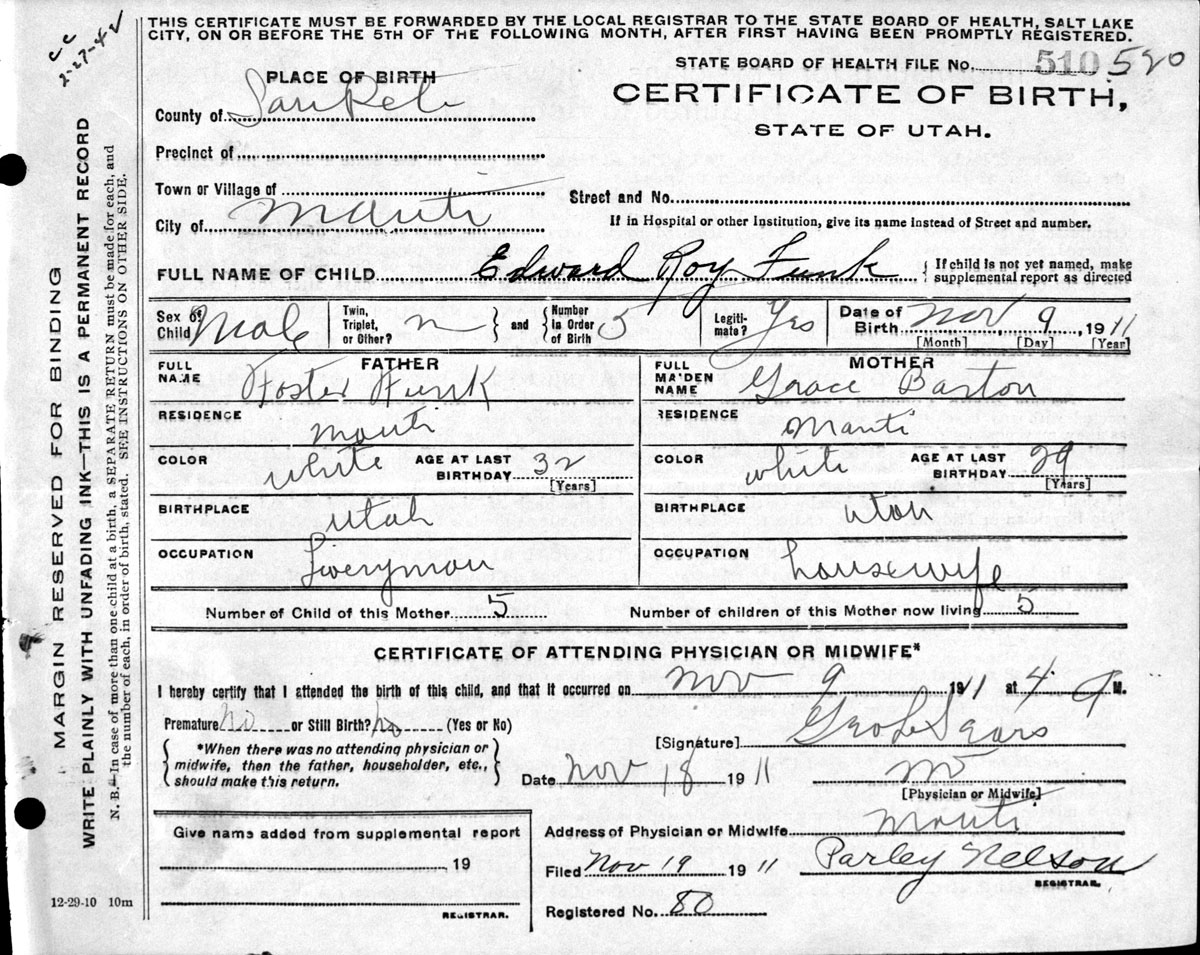 C C
2-27-42
THIS CERTIFICATE MUST BE FORWARDED BY THE LOCAL REGISTRAR TO THE STATE BOARD OF HEALTH, SALT LAKE
CITY, ON OR BEFORE THE 5TH OF THE FOLLOWING MONTH, AFTER FIRST HAVING BEEN PROMPTLY REGISTERED.
STATE BOARD OF HEALTH FILE No. 510 520
CERTIFICATE OF BIRTH,
STATE OF UTAH.
PLACE OF BIRTH
County of SanPete
Precinct of
Town or Village of
City of Manti
Street and No.
If in Hospital or other Institution, give its name instead of Street and number.
FULL NAME OF CHILD Edward Roy Funk { If child is not yet named, make
supplemental report as directed
Sex of Child Male
Twin, Triplet, or Other? n } and { Number in Order of Birth 5
Legitimate? Yes
Date of Birth Nov 9, 1911
[Month] [Day] [Year]
FATHER
FULL NAME Foster Funk
RESIDENCE Manti
COLOR white AGE AT LAST BIRTHDAY 32
[Years]
BIRTHPLACE Utah
OCCUPATION Liveryman
MOTHER
FULL MAIDEN NAME Grace Barton
RESIDENCE Manti
COLOR white AGE AT LAST BIRTHDAY 29
[Years]
BIRTHPLACE Utah
OCCUPATION housewife
Number of Child of this Mother 5 Number of children of this Mother now living 5
CERTIFICATE OF ATTENDING PHYSICIAN OR MIDWIFE*
I hereby certify that I attended the birth of this child, and that it occurred on Nov 9 1911 at 4 M.
Premature No or Still Birth? No (Yes or No)
{ *When there was no attending physician or
midwife, then the father, householder, etc.,
should make this return. }
[Signature] Geo L Sears
Date Nov 18 1911 MD
[Physician or Midwife]
Give name added from supplemental report
19
REGISTRAR.
Address of Physician or Midwife Manti
Filed Nov 19 1911 Parley Nelson
REGISTRAR.
Registered No. 80
12-29-10 10m
MARGIN RESERVED FOR BINDING
WRITE PLAINLY WITH UNFADING INK—THIS IS A PERMANENT RECORD
N. B.—In case of more than one child at a birth, a SEPARATE RETURN must be made for each, and
the number of each, in order of birth, stated. SEE INSTRUCTIONS ON OTHER SIDE.